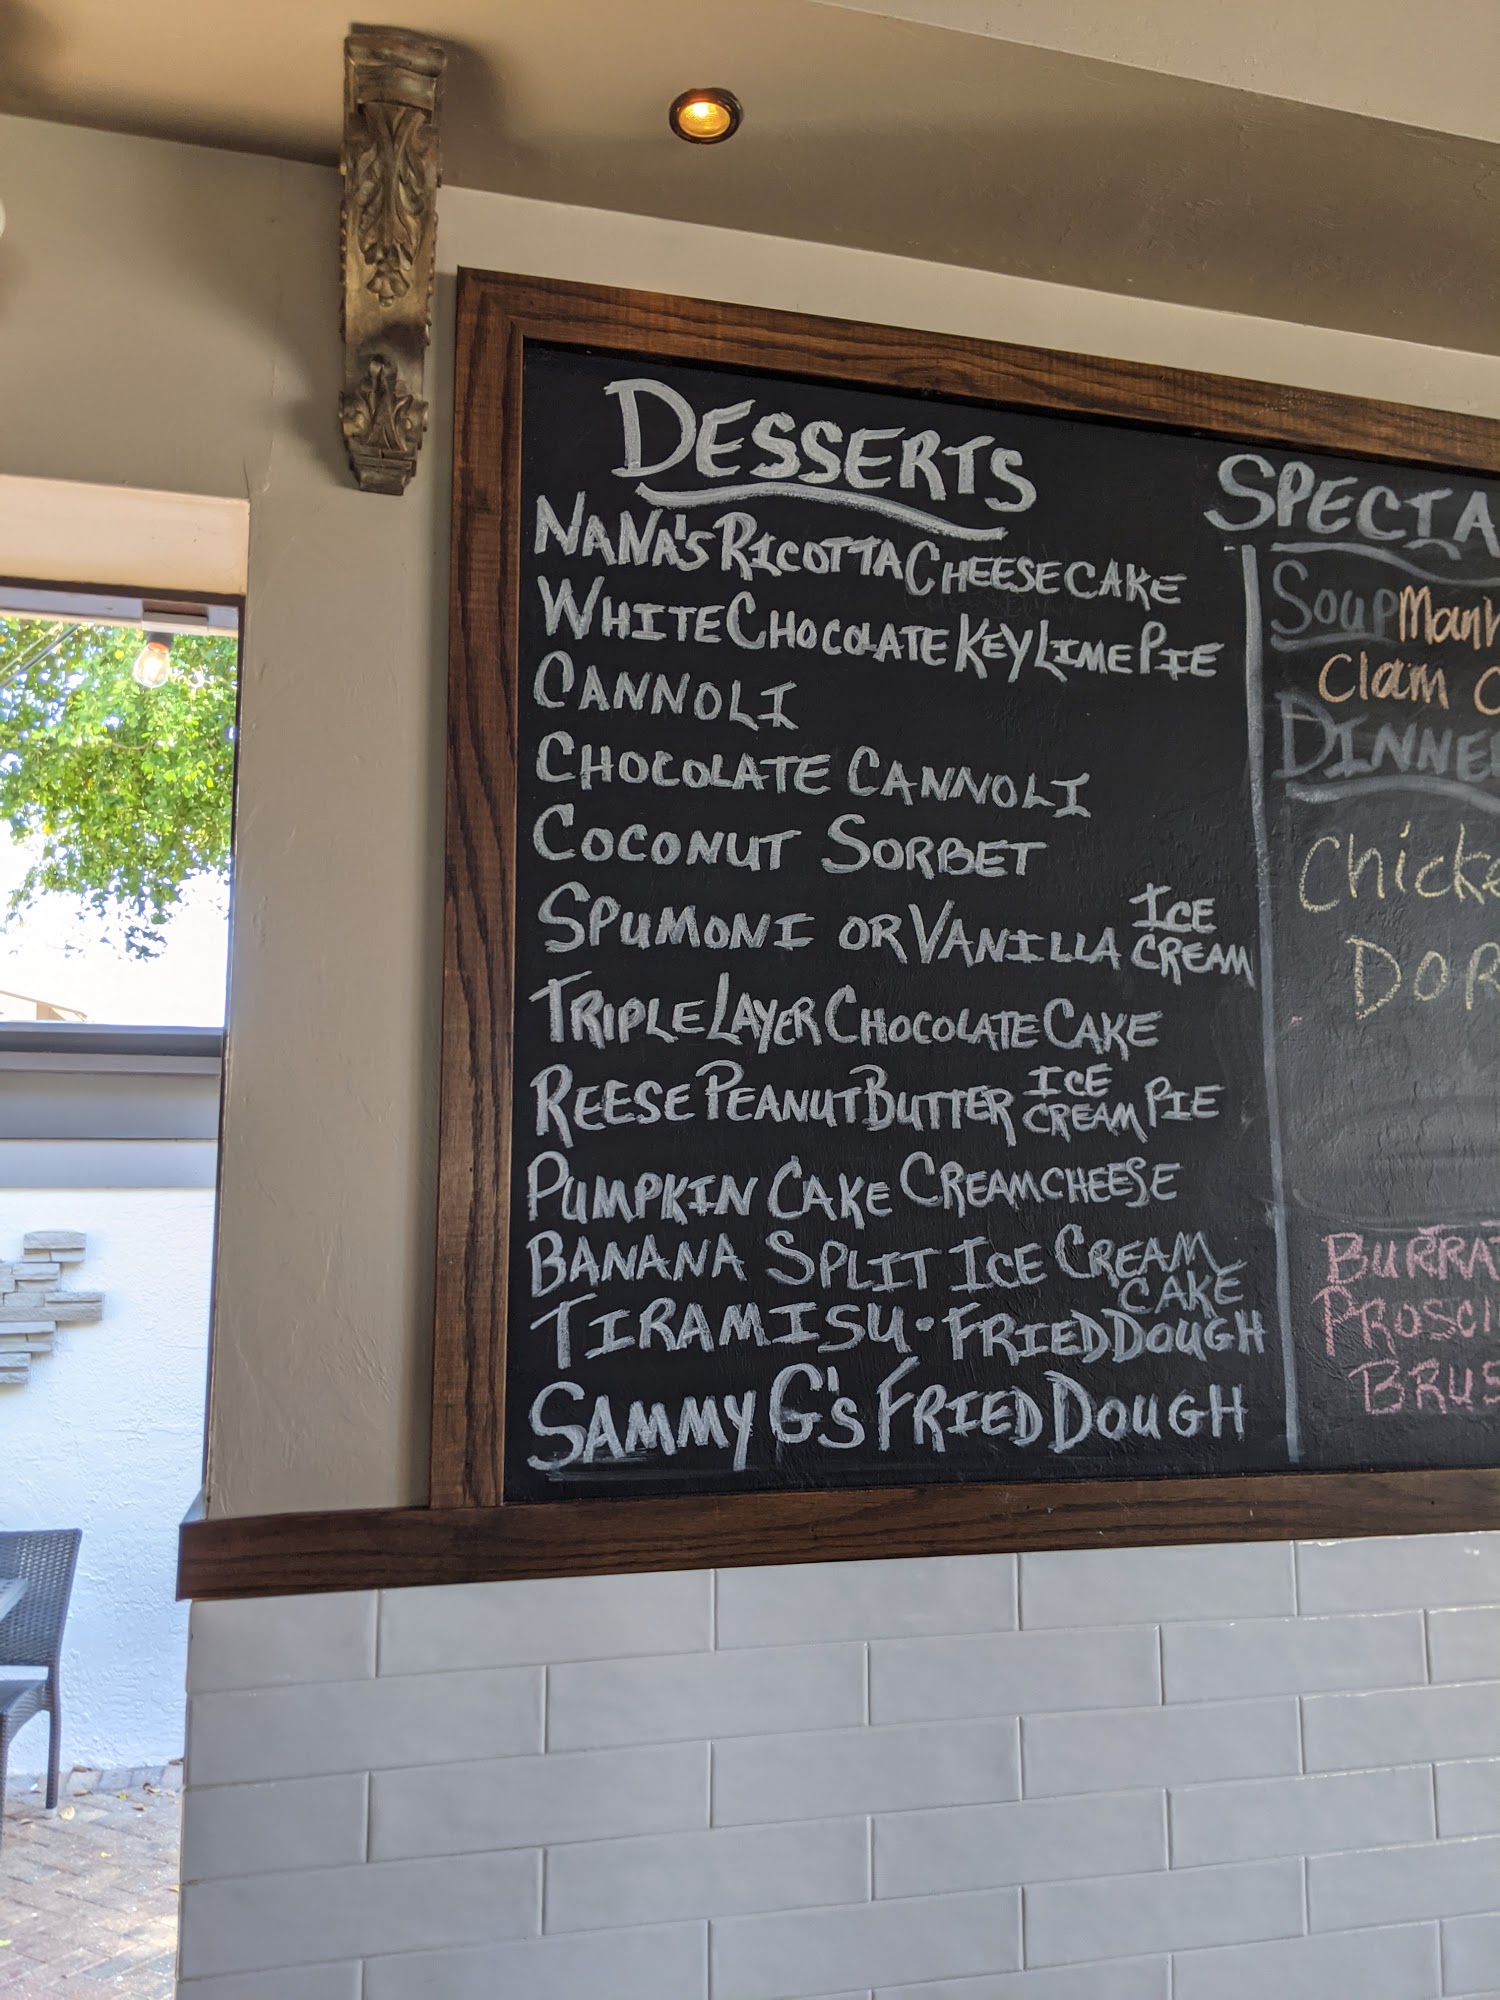 DESSERTS
NANA'S RICOTTA CHEESECAKE
WHITE CHOCOLATE KEY LIME PIE
CANNOLI
CHOCOLATE CANNOLI
COCONUT SORBET
SPUMONI OR VANILLA ICE CREAM
TRIPLE LAYER CHOCOLATE CAKE
REESE PEANUT BUTTER ICE CREAM PIE
PUMPKIN CAKE CREAMCHEESE
BANANA SPLIT ICE CREAM CAKE
TIRAMISU • FRIED DOUGH
SAMMY G'S FRIED DOUGH
SPECIA
SOUP Manh
Clam C
DINNE
Chicke
DOR
BURRAT
PROSCI
BRUS